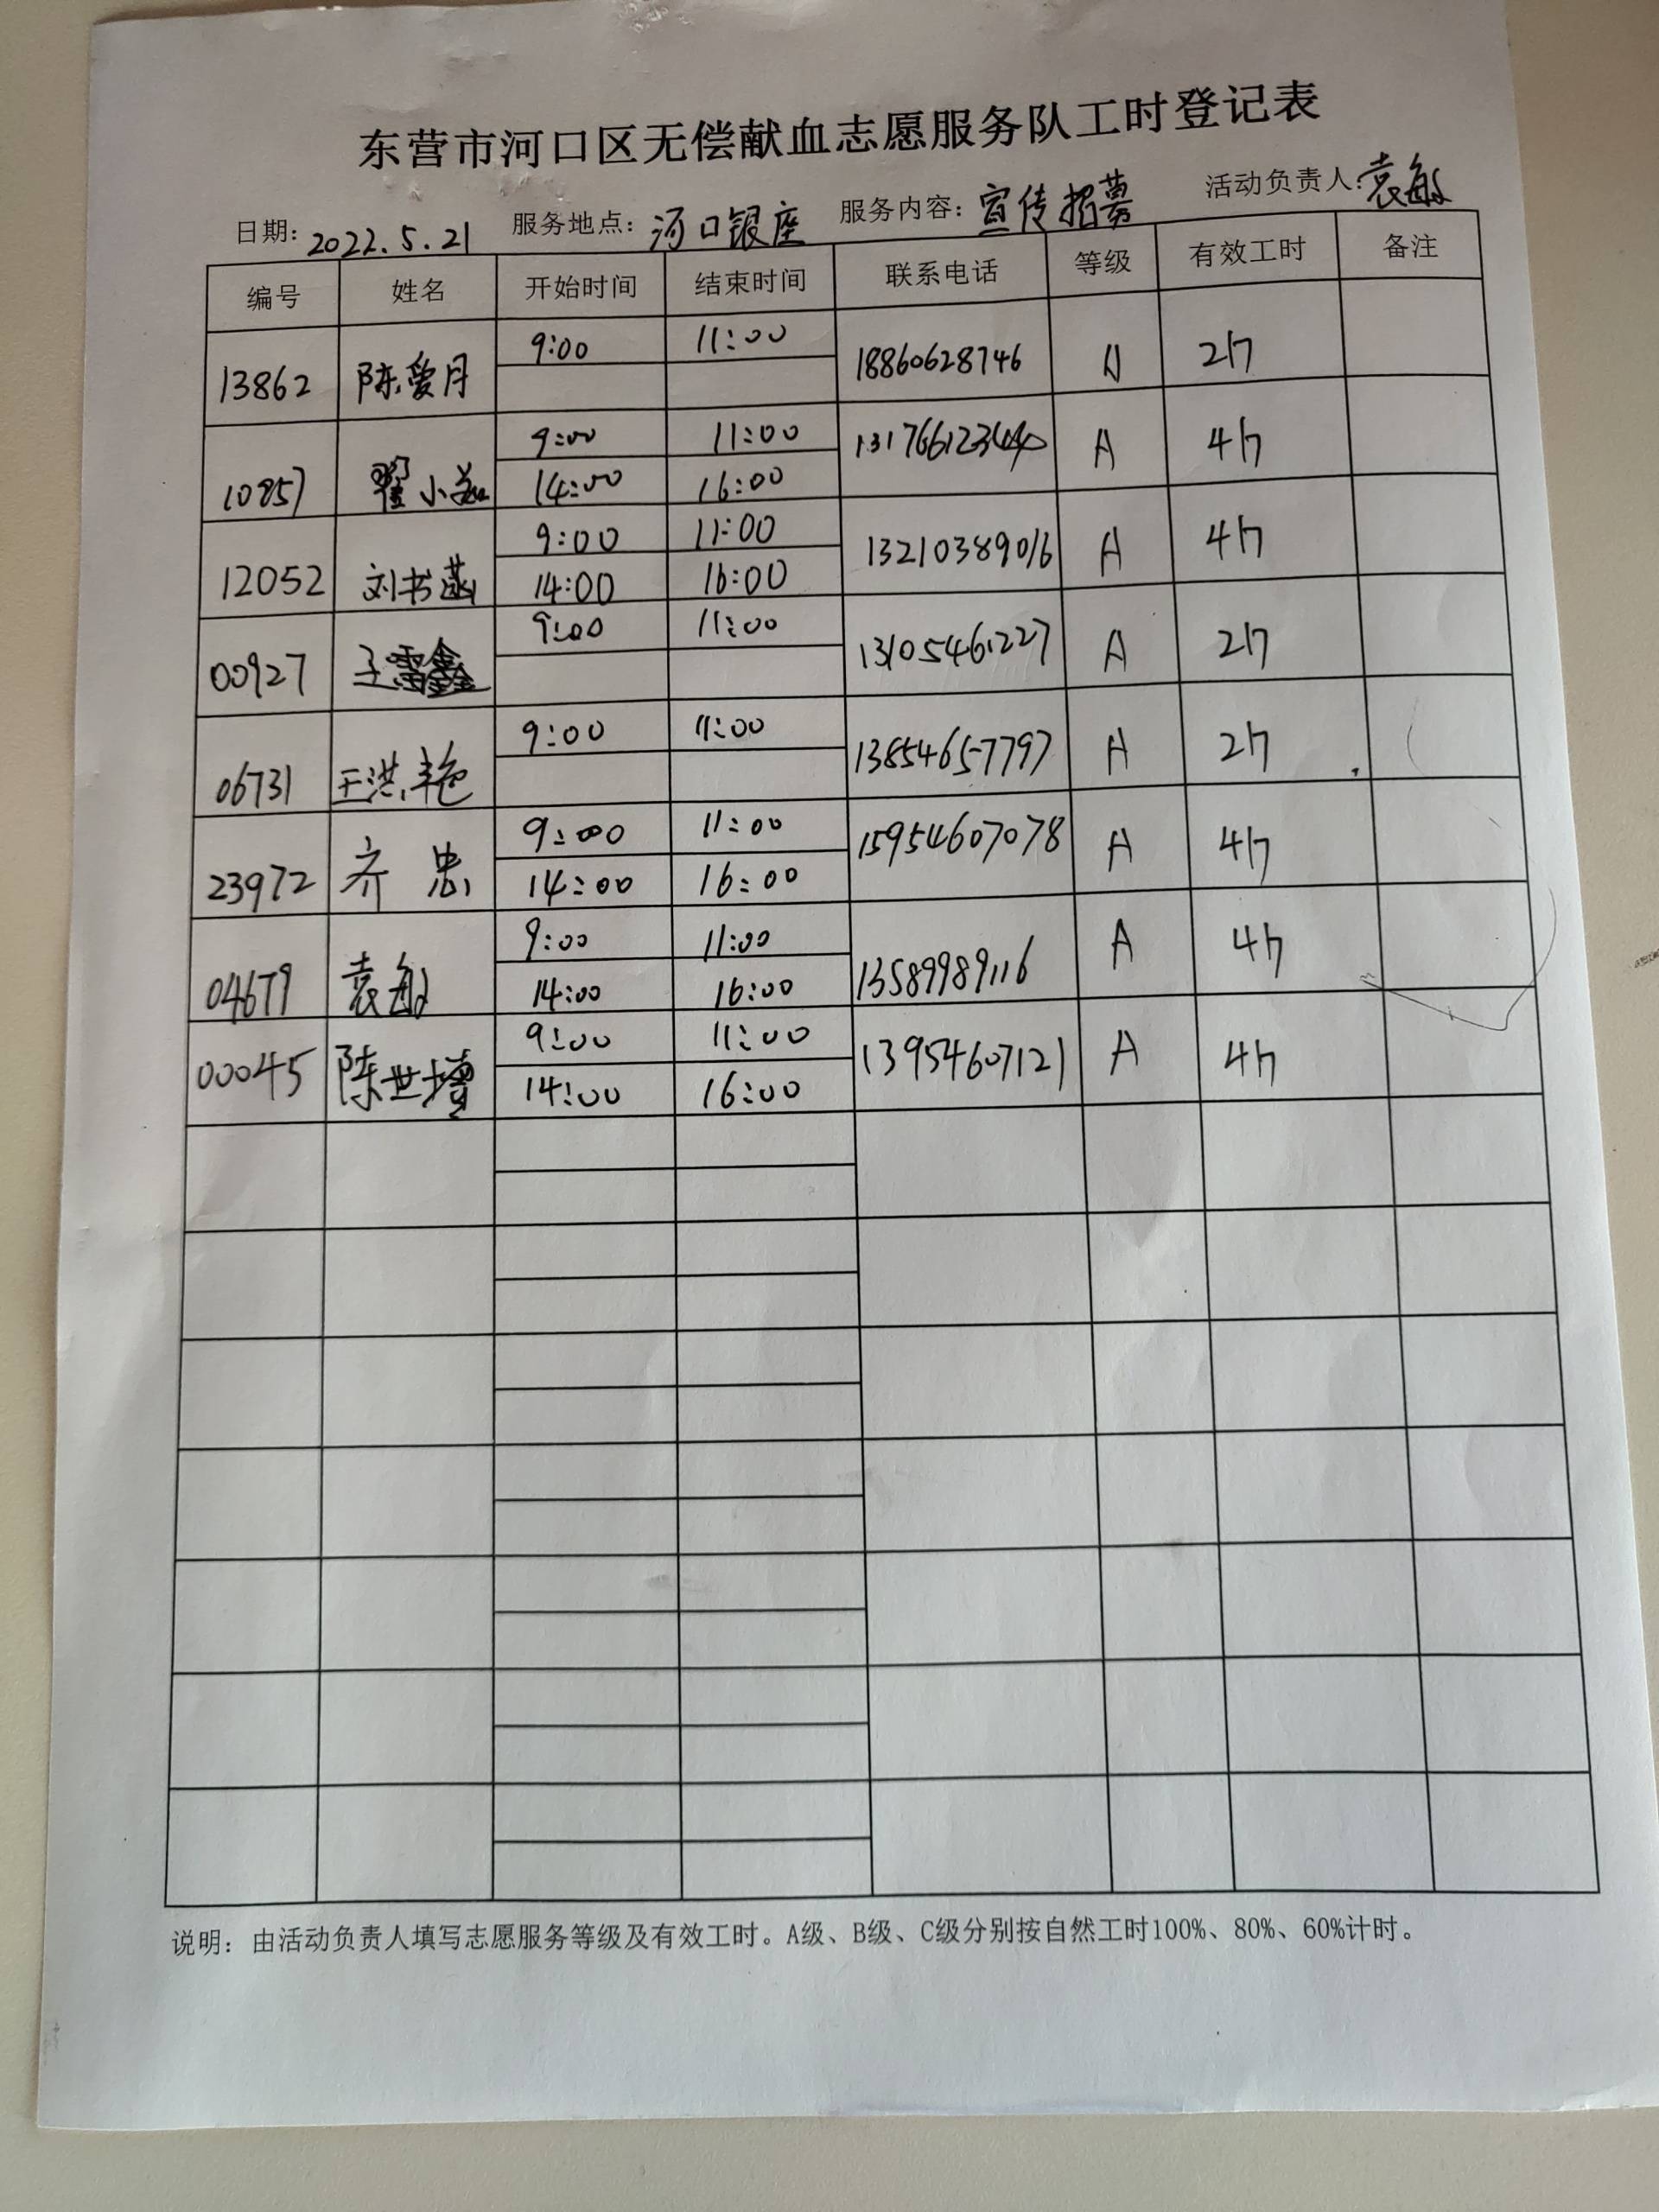 东营市河口区无偿献血志愿服务队工时登记表
日期: 2022.5.21 服务地点: 河口银座 服务内容: 宣传招募 活动负责人: 袁敏
编号 姓名 开始时间 结束时间 联系电话 等级 有效工时 备注
13862 陈爱月 9:00 11:00 18860628746 A 2h
10857 翟小 9:00 11:00 A 4h
14:00 16:00
12052 刘书菡 9:00 11:00 13210389016 A 4h
14:00 16:00
00927 王雷鑫 9:00 11:00 13105461227 A 2h
06731 王洪艳 9:00 11:00 13854657797 A 2h
23972 齐忠 9:00 11:00 15954607078 A 4h
14:00 16:00
04679 袁敏 9:00 11:00 13589989116 A 4h
14:00 16:00
00045 陈世增 9:00 11:00 13954607121 A 4h
14:00 16:00
说明: 由活动负责人填写志愿服务等级及有效工时。A级、B级、C级分别按自然工时100%、80%、60%计时。